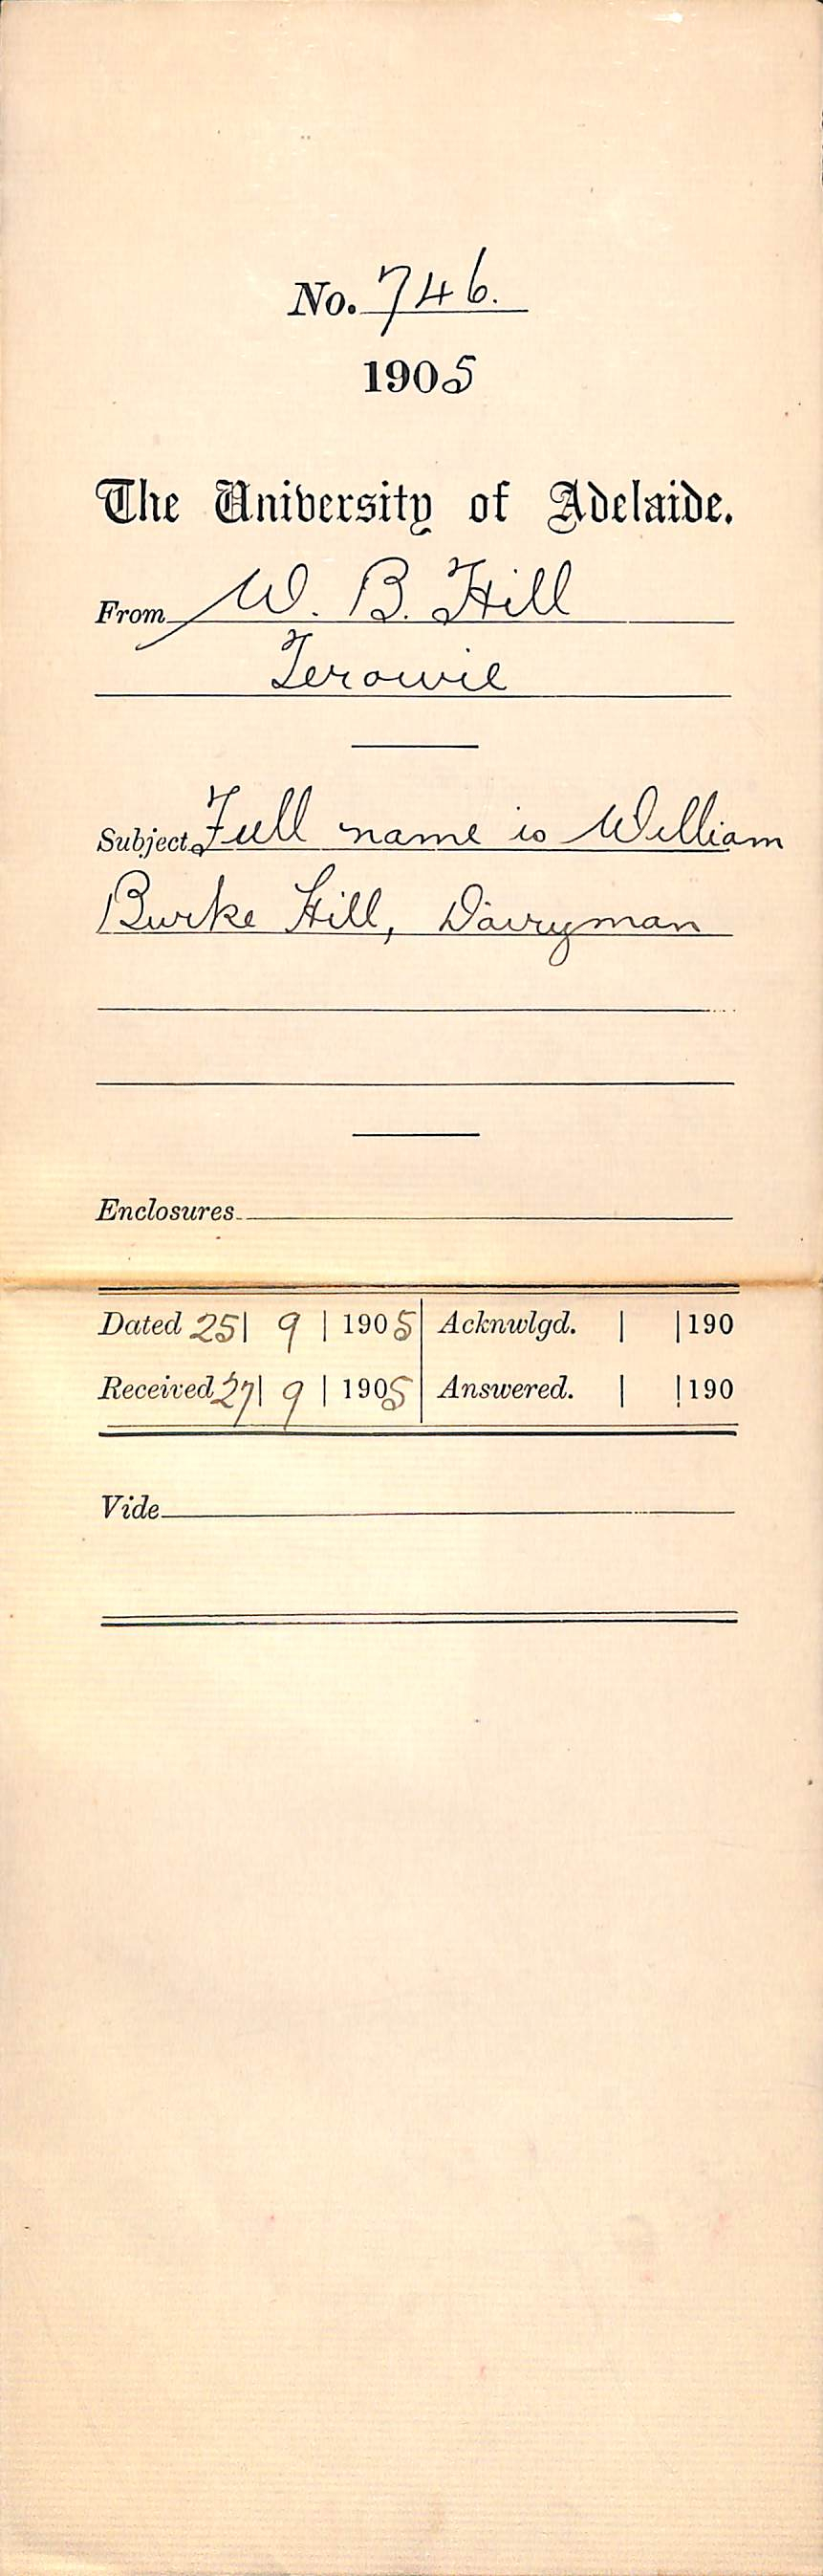 No. 746.
1905
The University of Adelaide.
From W. B. Hill
Terowie
Subject Full name is William
Burke Hill, Dairyman
Enclosures
Dated 25| 9 | 1905 | Acknwlgd. | |190
Received 27| 9 | 1905 | Answered. | |190
Vide